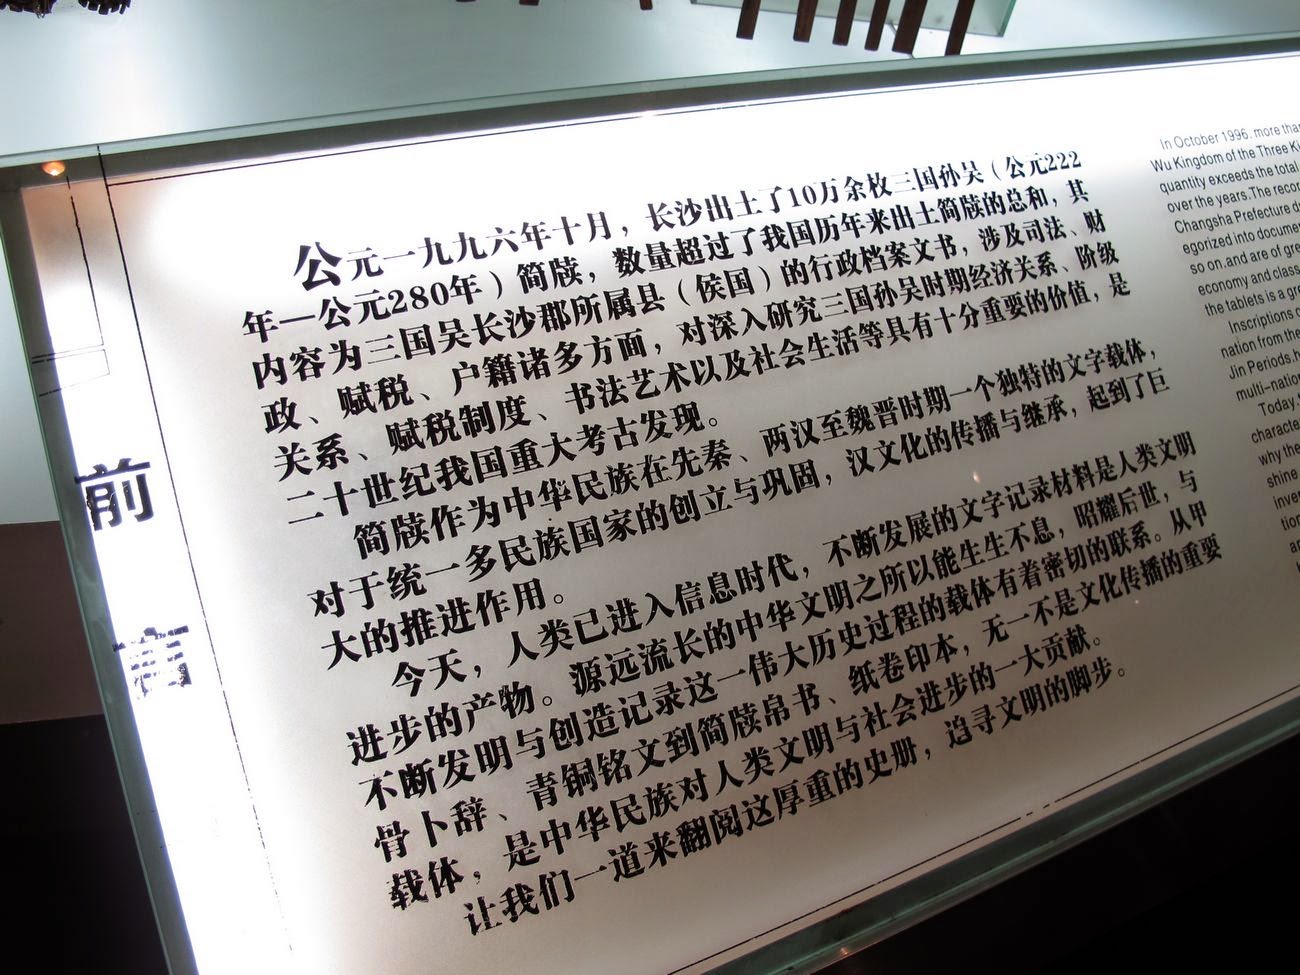 前言
公元一九九六年十月，长沙出土了10万余枚三国孙吴（公元222
年—公元280年）简牍，数量超过了我国历年来出土简牍的总和，其
内容为三国吴长沙郡所属县（侯国）的行政档案文书，涉及司法、财
政、赋税、户籍诸多方面，对深入研究三国孙吴时期经济关系、阶级
关系、赋税制度、书法艺术以及社会生活等具有十分重要的价值，是
二十世纪我国重大考古发现。
简牍作为中华民族在先秦、两汉至魏晋时期一个独特的文字载体，
对于统一多民族国家的创立与巩固，汉文化的传播与继承，起到了巨
大的推进作用。
今天，人类已进入信息时代，不断发展的文字记录材料是人类文明
进步的产物。源远流长的中华文明之所以能生生不息，昭耀后世，与
不断发明与创造记录这一伟大历史过程的载体有着密切的联系。从甲
骨卜辞、青铜铭文到简牍帛书、纸卷印本，无一不是文化传播的重要
载体，是中华民族对人类文明与社会进步的一大贡献。
让我们一道来翻阅这厚重的史册，追寻文明的脚步。
In October 1996. more than
Wu Kingdom of the Three Ki
quantity exceeds the total
over the years.The recor
Changsha Prefecture d
egorized into docume
so on.and are of gre
economy and class
the tablets is a gre
Inscriptions o
nation from the
Jin Periods.h
multi-nation
Today,
characte
why the
shine
inven
tion